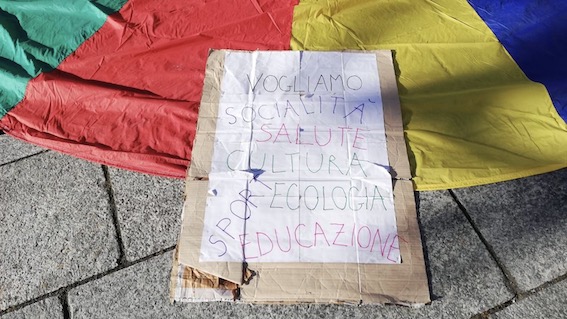 VOGLIAMO
SOCIALITÀ
SALUTE
CULTURA
ECOLOGIA
SPORT
EDUCAZIONE